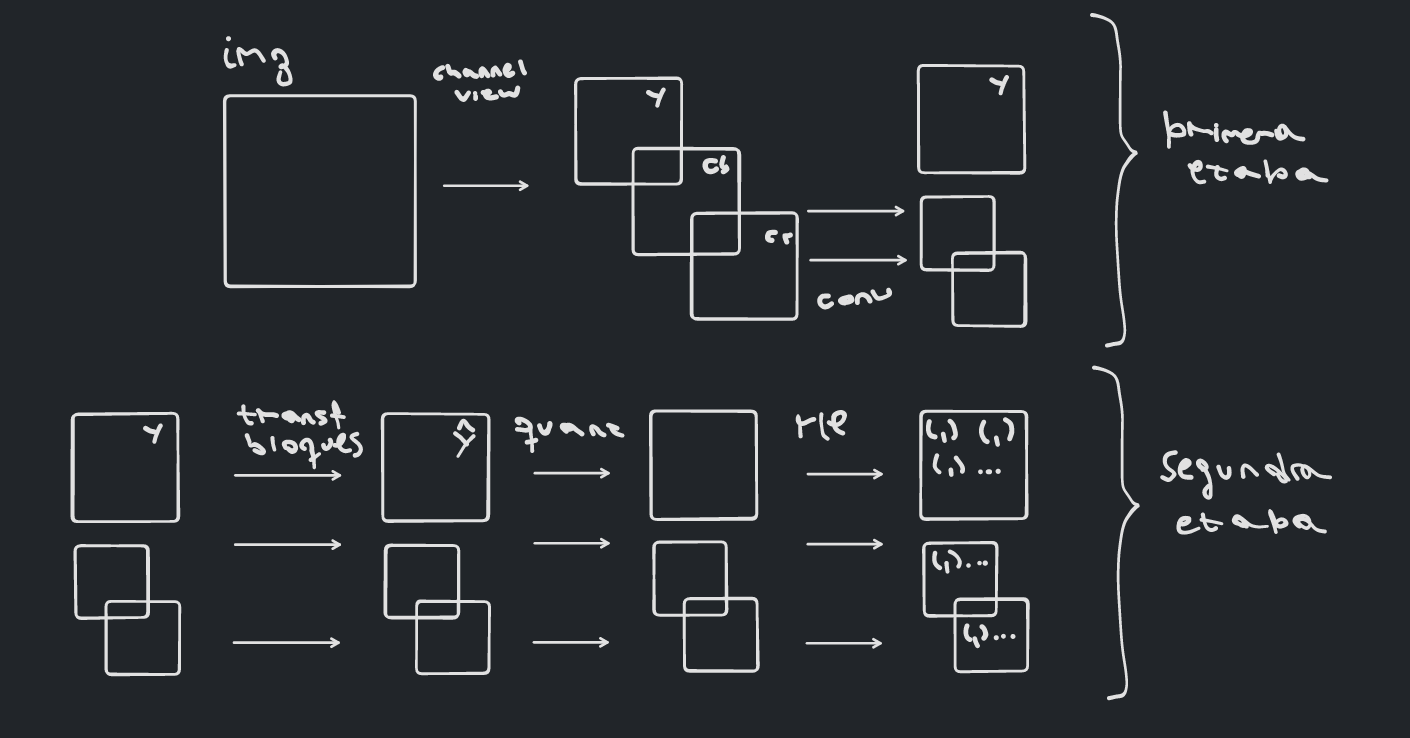 img
channel
view
Y
Cb
Cr
conv
Y
primera
etapa
Y
transf
bloques
Ŷ
quant
rle
(,) (,)
(,) ...
(,)...
(,)...
segunda
etapa